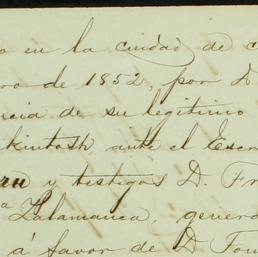 o en la ciudad de c
ro de 1852, por D
ncia de su legitimo
kintosh ante el Escr
ru y testigos D. Fr
a Zalamanca, genera
á favor de D Tom